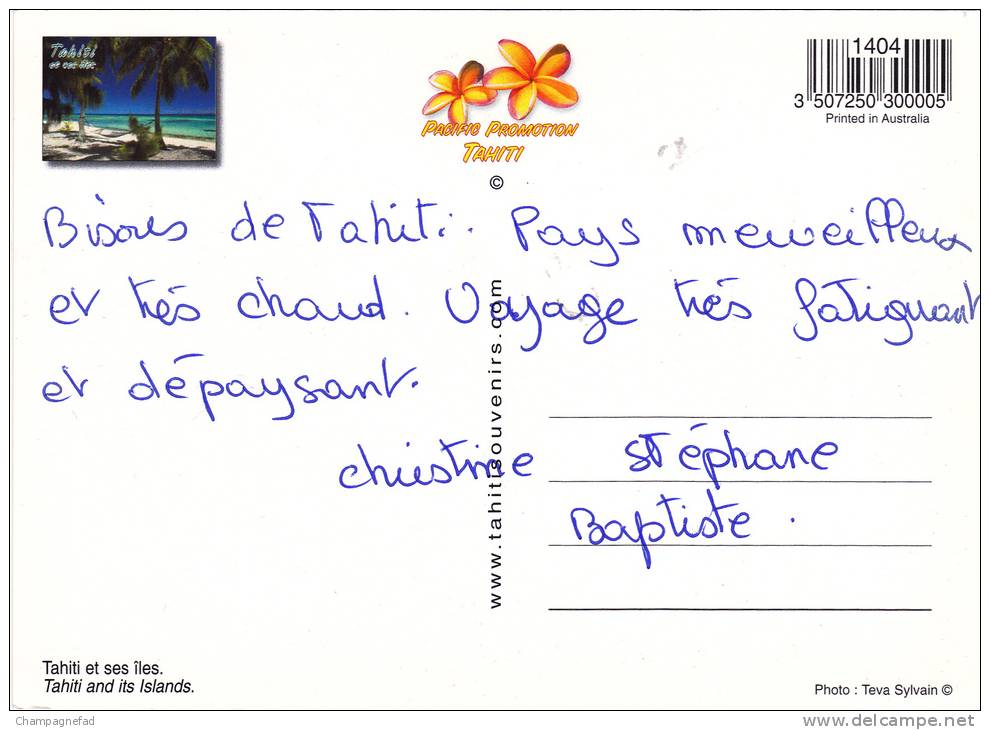 Tahiti
et ses îles
PACIFIC PROMOTION
TAHITI
©
1404
3 507250 300005
Printed in Australia
Bisous de Tahiti. Pays merveilleux
et très chaud. Voyage très fatiguant
et dépaysant.
christine stéphane
Baptiste.
www.tahitisouvenirs.com
Tahiti et ses îles.
Tahiti and its Islands.
Photo : Teva Sylvain ©
Champagnefad
www.delcampe.net